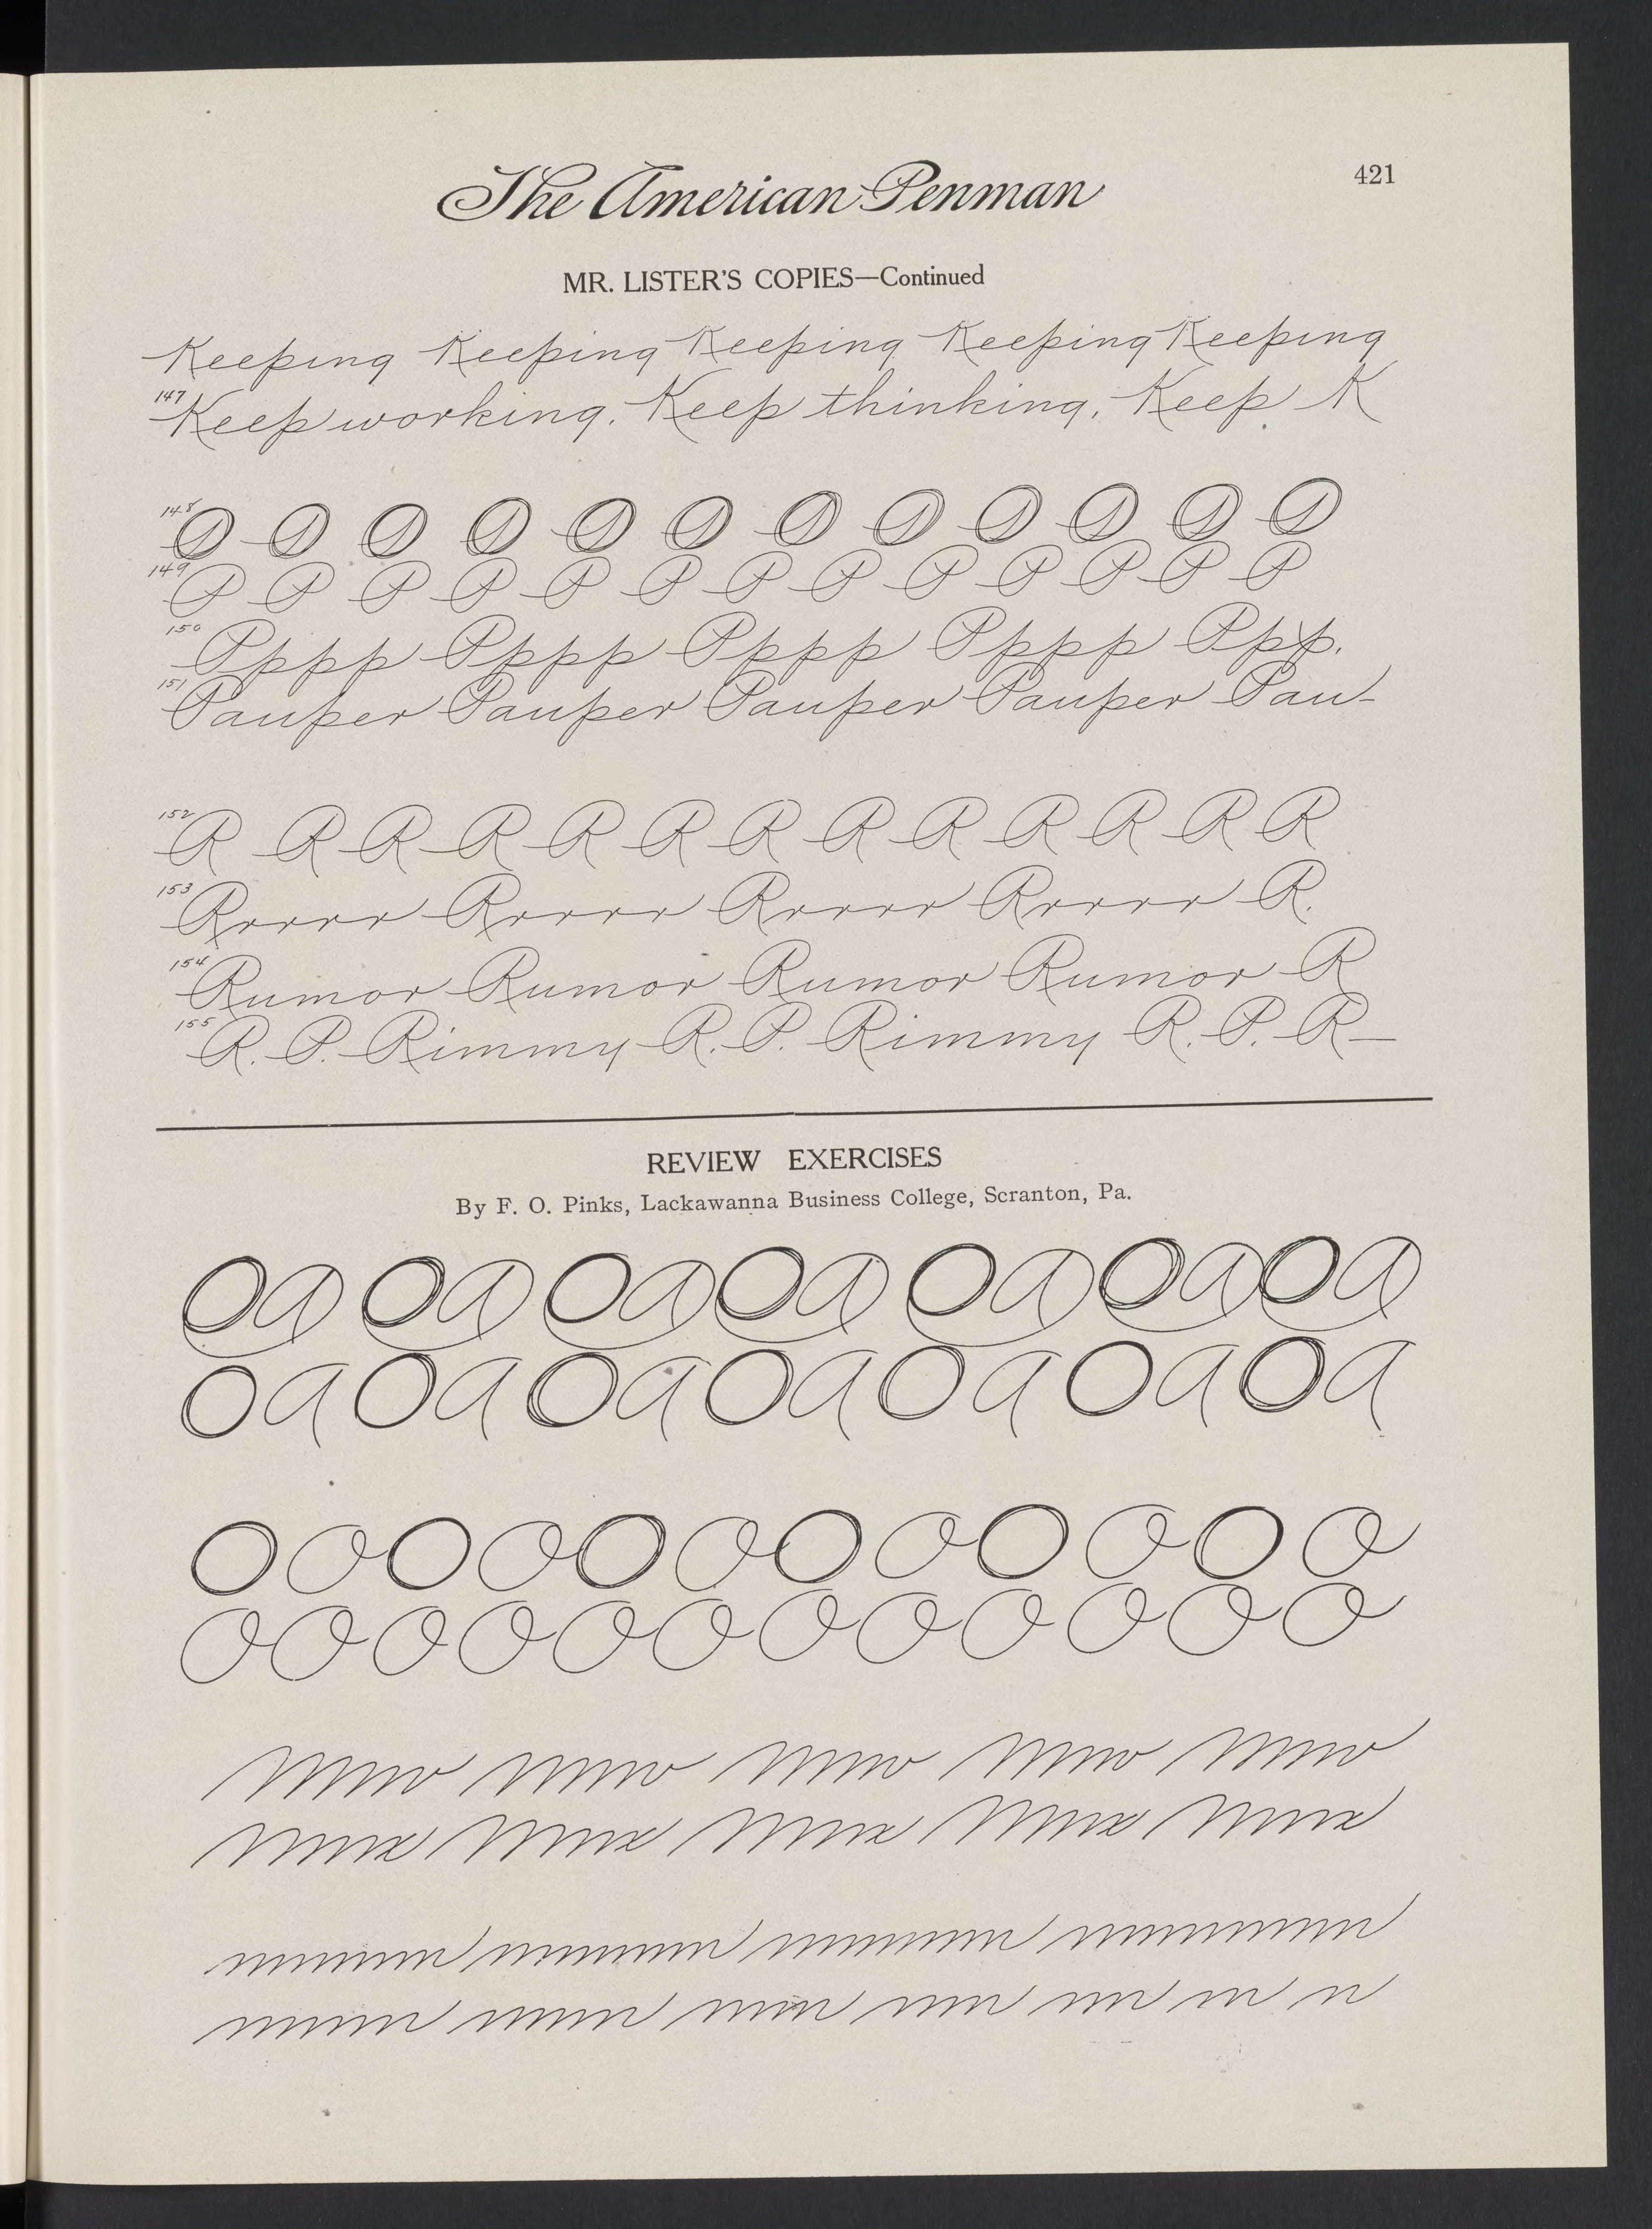 The American Penman
421
MR. LISTER'S COPIES—Continued
Keeping Keeping Keeping Keeping Keeping
147 Keep working. Keep thinking. Keep K
148
149 P P P P P P P P P P P P P
150 Pppp Pppp Pppp Pppp Ppp.
151 Pauper Pauper Pauper Pauper Pau-
152 R R R R R R R R R R R R R
153 Rrrrrr Rrrrrr Rrrrrr Rrrrrr R.
154 Rumor Rumor Rumor Rumor R
155 R. P. Rimmy R. P. Rimmy R. P. R-
REVIEW EXERCISES
By F. O. Pinks, Lackawanna Business College, Scranton, Pa.
O a O a O a O a O a O a O a
O a O a O a O a O a O a O a
O O O O O O O O O O O O
O O O O O O O O O O O O